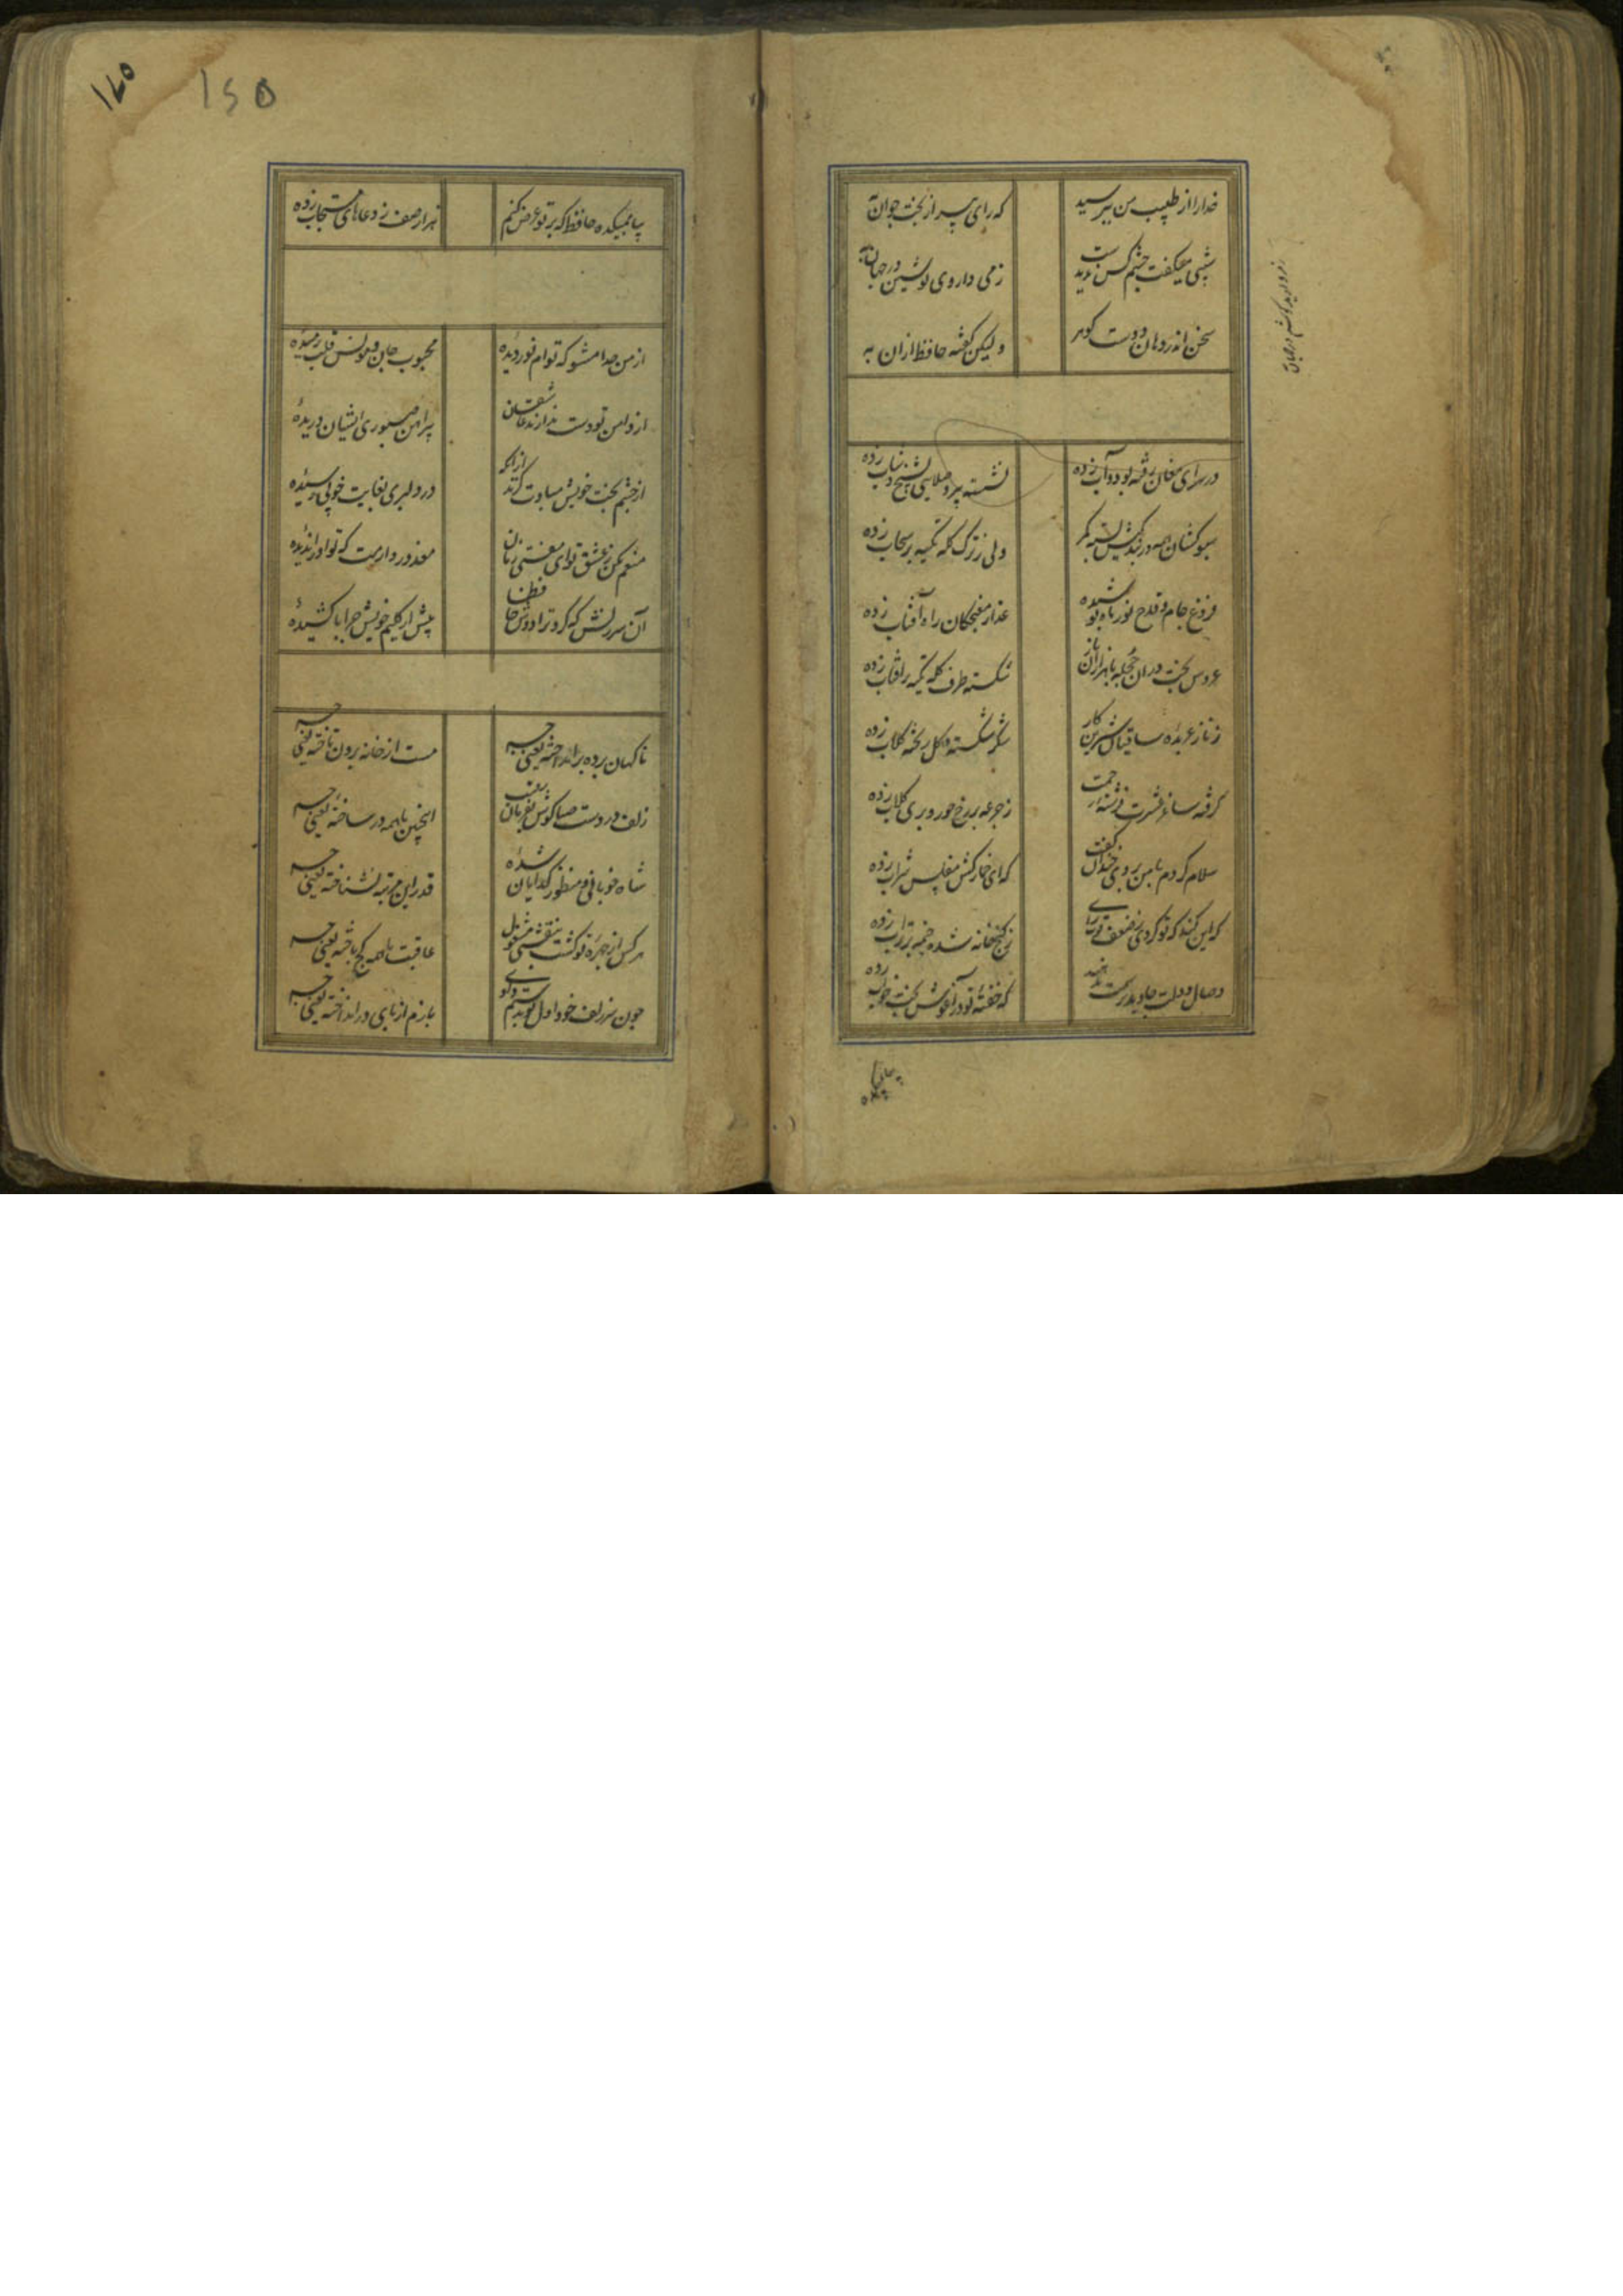 خدارا از طبیب من بپرسید
که رای پیر از بخت جوان به
شبی میگفت چشم کس ندیدست
زمی داروی نوشین در جهان به
سخن اندر دهان دوست گوهر
ولیکن گفته حافظ ازان به
در سرای مغان رفته بود و آب زده
نشسته پیر و صلایی بشیخ و شاب زده
سبوکشان همه در بندگیش بسته کمر
ولی ز ترک کله تکیه بر سحاب زده
فروغ جام و قدح نور ماه پوشیده
عذار مغبچگان راه آفتاب زده
عروس بخت دران حجله با هزاران ناز
شکسته طرف کله تکیه بر نقاب زده
ز ناز عربده ساقیان شیرین کار
شکر شکسته و گل ریخته کلاب زده
گرفته ساغر عشرت فرشته رحمت
ز جرعه بر رخ حور و پری کلاب زده
سلام کردم با من بروی خندان گفت
که ای خمارکش مفلس شراب زده
که این کند که تو کردی ز ضعف رای
ز گنج خانه شده خیمه بر تراب زده
وصال دولت جاوید ترسمت ندهند
که خفته تو در آغوش بخت خواب زده
بیا بمیکده
بیا بمیکده حافظ که بر تو عرض کنم
هزار صف ز دعاهای مستجاب زده
از من جدا مشو که توام نور دیده
محبوب جان و مونس قلب رمیدهٔ
از دامن تو دست ندارند عاشقان
پیراهن صبوری ایشان دریدهٔ
از چشم بخت خویش مبادت گزند ازانکه
در دلبری بغایت خوبی رسیدهٔ
منعم مکن ز عشق وی ای مفتی زمان
معذور دارمت که تو او را ندیدهٔ
آن سرزنش که کرد ترا دوست حافظا
بیش از گلیم خویش مگر پا کشیدهٔ
ناگهان پرده بر انداخته یعنی چه
مست از خانه برون تاخته یعنی چه
زلف در دست صبا گوش بفرمان رقیب
اینچنین با همه در ساخته یعنی چه
شاه خوبانی و منظور گدایان شدهٔ
قدر این مرتبه نشناخته یعنی چه
هر کس از مهره تو گشت بنقشی مشغول
عاقبت با همه کج باخته یعنی چه
چون سر زلف خود اول تو بدستم دادی
بازم از پای در انداخته یعنی چه